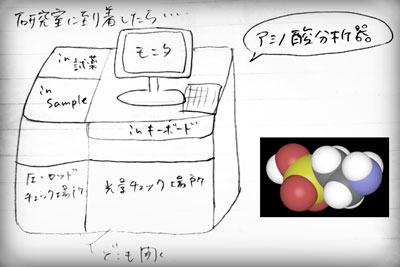 研究室に到着したら....
アミノ酸分析器
モニタ
in 試薬
in
sample
in キーボード
圧・ロッド
チェック場所
光量チェック場所
どこも開く